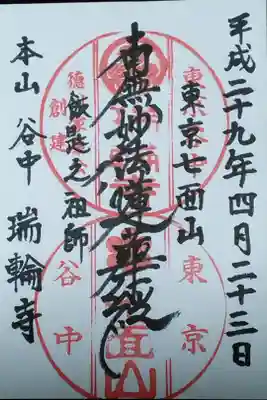 平成二十九年四月二十三日
東京七面山
南無妙法蓮華経
飯匙之祖師
本山 谷中 瑞輪寺
創建
東京
谷中